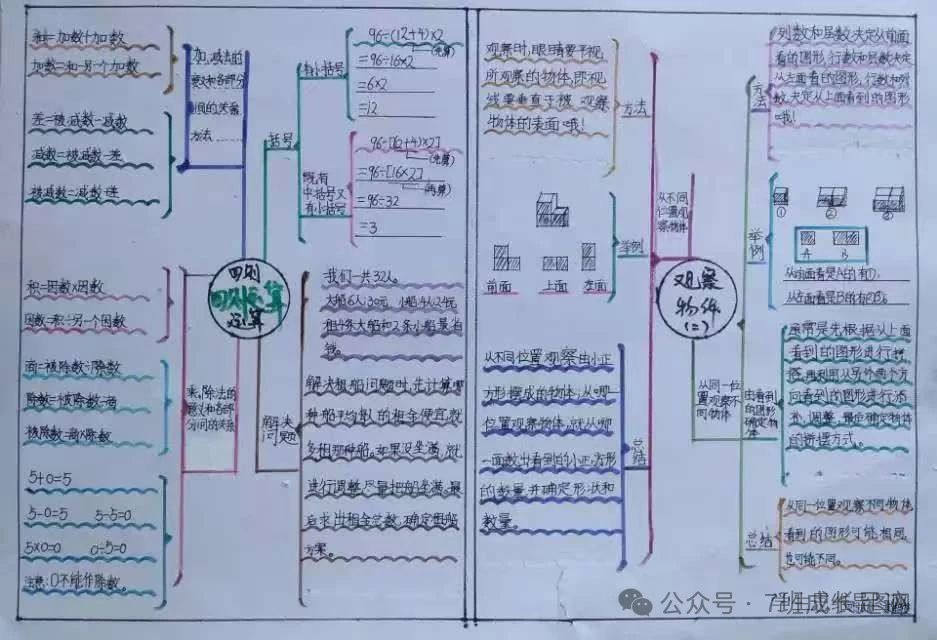 和=加数+加数
加数=和-另一个加数
差=被减数-减数
减数=被减数-差
被减数=减数+差
加、减法的
意义和各部分
间的关系
方法
积=因数×因数
因数=积÷另一个因数
商=被除数÷除数
除数=被除数÷商
被除数=商×除数
乘、除法的
意义和各部
分间的关系
5+0=5
5-0=5 5-5=0
5×0=0 0÷5=0
注意:0不能作除数。
四则
四则运算
运算
括号
有小括号
96÷(12+4)×2
(先算)
=96÷16×2
=6×2
=12
既有
中括号又
有小括号
96÷[(12+4)×2]
(先算)
=96÷[16×2]
(再算)
=96÷32
=3
解决
问题
我们一共32人。
大船6人30元 小船4人24元
租4条大船和2条小船最省
钱。
解决租船问题时,先计算哪
种船平均每人的租金便宜,就
多租那种船。如果没坐满,就
进行调整尽量把船坐满,最
后求出租金总数,确定租船
方案。
观察
物体
(二)
从不同
位置观
察物体
方法
观察时,眼睛要平视
所观察的物体,即视
线要垂直于被 观察
物体的表面哦!
举例
前面 上面 左面
总结
从不同位置观察由小正
方形摆成的物体,从哪一
位置观察物体,就从哪
一面数出看到的小正方形
的数量,并确定形状和
数量。
从同一位
置观察不
同物体
方法
列数和层数决定从前面
看的图形,行数和层数决定
从左面看的图形,行数和列
数决定从上面看到的图形
哦!
举例
① ② ③
A B
从前面看是A的有①,
从左面看是B的有②③。
由看到
的图形
确定物
体
通常是先根据从上面
看到的图形进行拼
搭,再利用从另外两个方
向看到的图形进行添
补、调整,最后确定物体
的拼搭方式。
总结
从同一位置观察不同物体
看到的图形可能相同,
也可能不同。
公众号·7班成长足迹